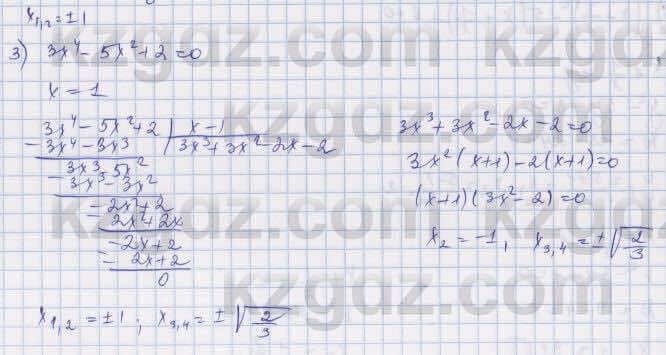 x₁,₂ = ±1
3) 3x⁴ - 5x² + 2 = 0
x = 1
3x⁴ - 5x² + 2 | x - 1
- 3x⁴ - 3x³ | 3x³ + 3x² - 2x - 2
3x³ - 5x²
- 3x³ - 3x²
- 2x² + 2
- - 2x² + 2x
- 2x + 2
- - 2x + 2
0
3x³ + 3x² - 2x - 2 = 0
3x²(x+1) - 2(x+1) = 0
(x+1)(3x² - 2) = 0
x₂ = -1, x₃,₄ = ±√(2/3)
x₁,₂ = ±1; x₃,₄ = ±√(2/3)
kzgdz.com
kzgdz.com
kzgdz.com